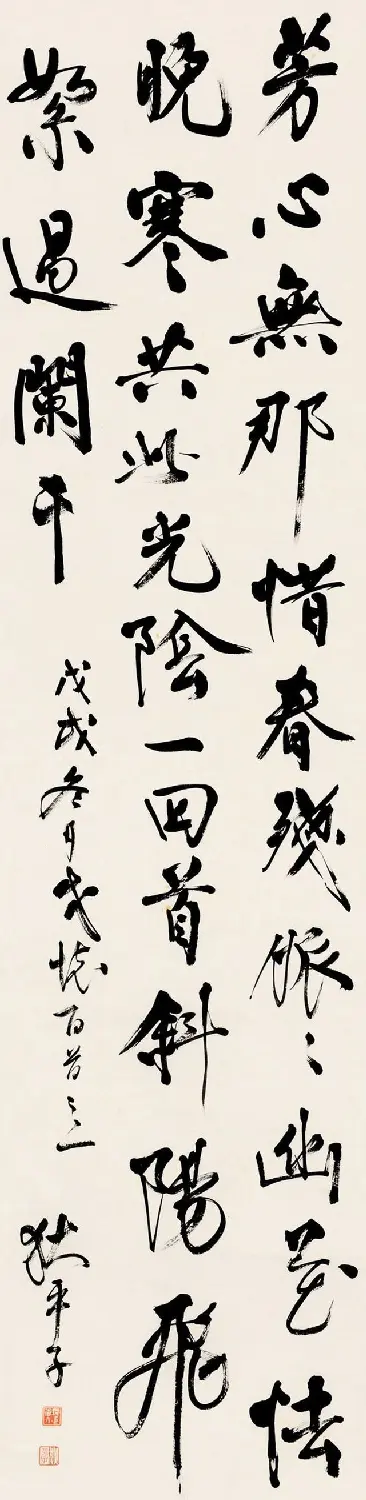 芳心無那惜春殘脈〻幽花怯
晚寒共此光陰一回首斜陽飛
絮過闌干
戊戌冬感懷百首之一
狄平子